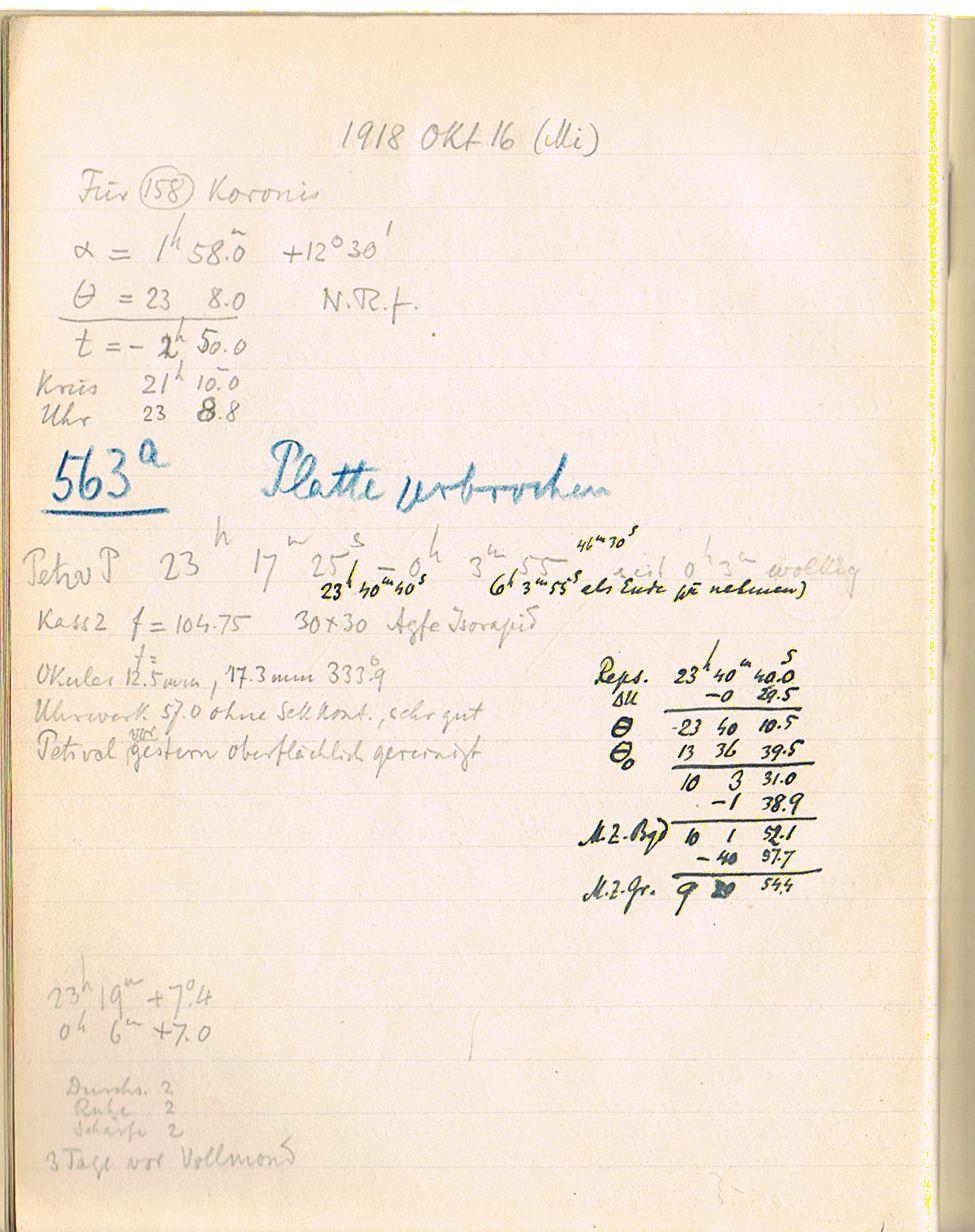 1918 Okt 16 (Mi)
Für (158) Koronis
α = 1ʰ 58.ᵐ0 +12° 30'
Θ = 23 8.0 N.R.f.
t = - 2ʰ 50.0
Kreis 21ʰ 10.ᵐ0
Uhr 23 8.8
563ᵃ Platte zerbrochen
46ᵐ 30ˢ
Petzv P 23ʰ 17ᵐ 25ˢ – 0ʰ 3ᵐ 55 seit 0ʰ 3ᵐ wolkig
23ʰ 40ᵐ 40ˢ (0ʰ 3ᵐ 55ˢ als Ende zu nehmen)
Kass 2 f = 104.75 30×30 Agfa Isorapid
Okular f = 12.5mm, 17.3mm 333.°9
Uhrwerk 57.0 ohne Sek Kont., sehr gut
Petzval vorgestern oberflächlich gereinigt
Reps. 23ʰ 40ᵐ 40.0ˢ
ΔU -0 29.5
Θ 23 40 10.5
Θ₀ 13 36 39.5
10 3 31.0
-1 38.9
M.Z.Bgd 10 1 52.1
- 40 57.7
M.Z.Gr. 9 20 54.4
23ʰ 19ᵐ +7.°4
0ʰ 6ᵐ +7.0
Durchs. 2
Ruhe 2
Schärfe 2
3 Tage vor Vollmond